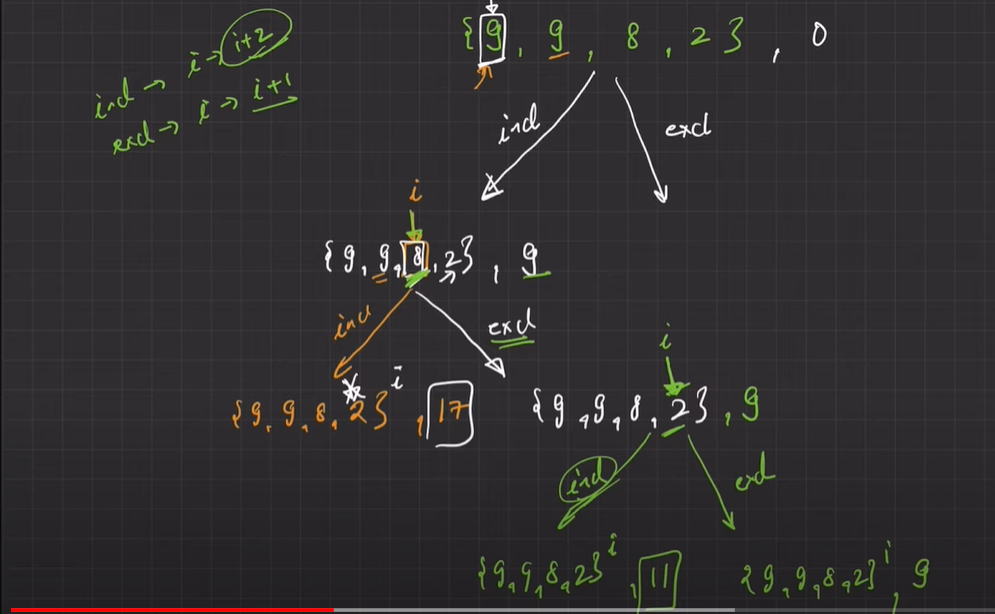 {9, 9, 8, 2}, 0
incl → i → i+2
excl → i → i+1
incl excl
i
{9, 9, 8, 2}, 9
incl excl
i
{9, 9, 8, 2} i, 17
{9, 9, 8, 2}, 9
incl excl
{9, 9, 8, 2} i, 11
{9, 9, 8, 2} i, 9